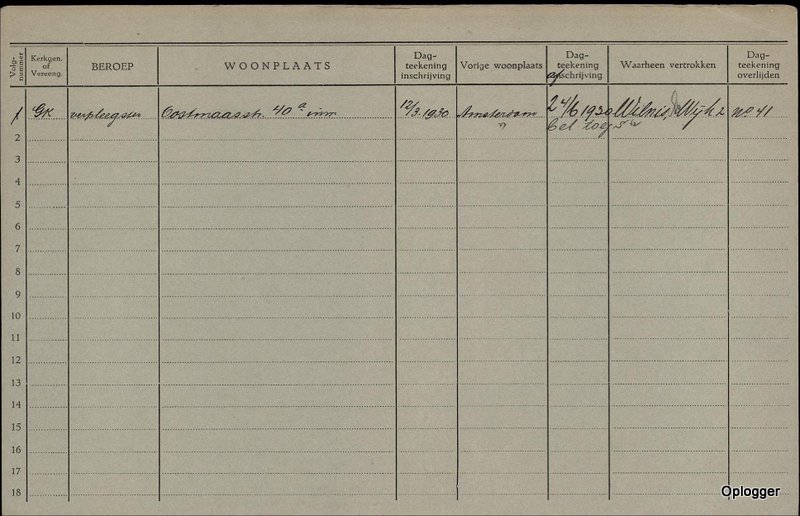 Volg-nummer Kerkgen. of Vereeng. BEROEP WOONPLAATS Dag-teekening inschrijving Vorige woonplaats Dag-teekening afschrijving Waarheen vertrokken Dag-teekening overlijden
1 GK verpleegster Oostmaasstr. 40 a inw 12/3.1930 Amsterdam 24/6 1930 Wilnis, Wijk 2 no 41
2 bel toeg
3
4
5
6
7
8
9
10
11
12
13
14
15
16
17
18
Oplogger